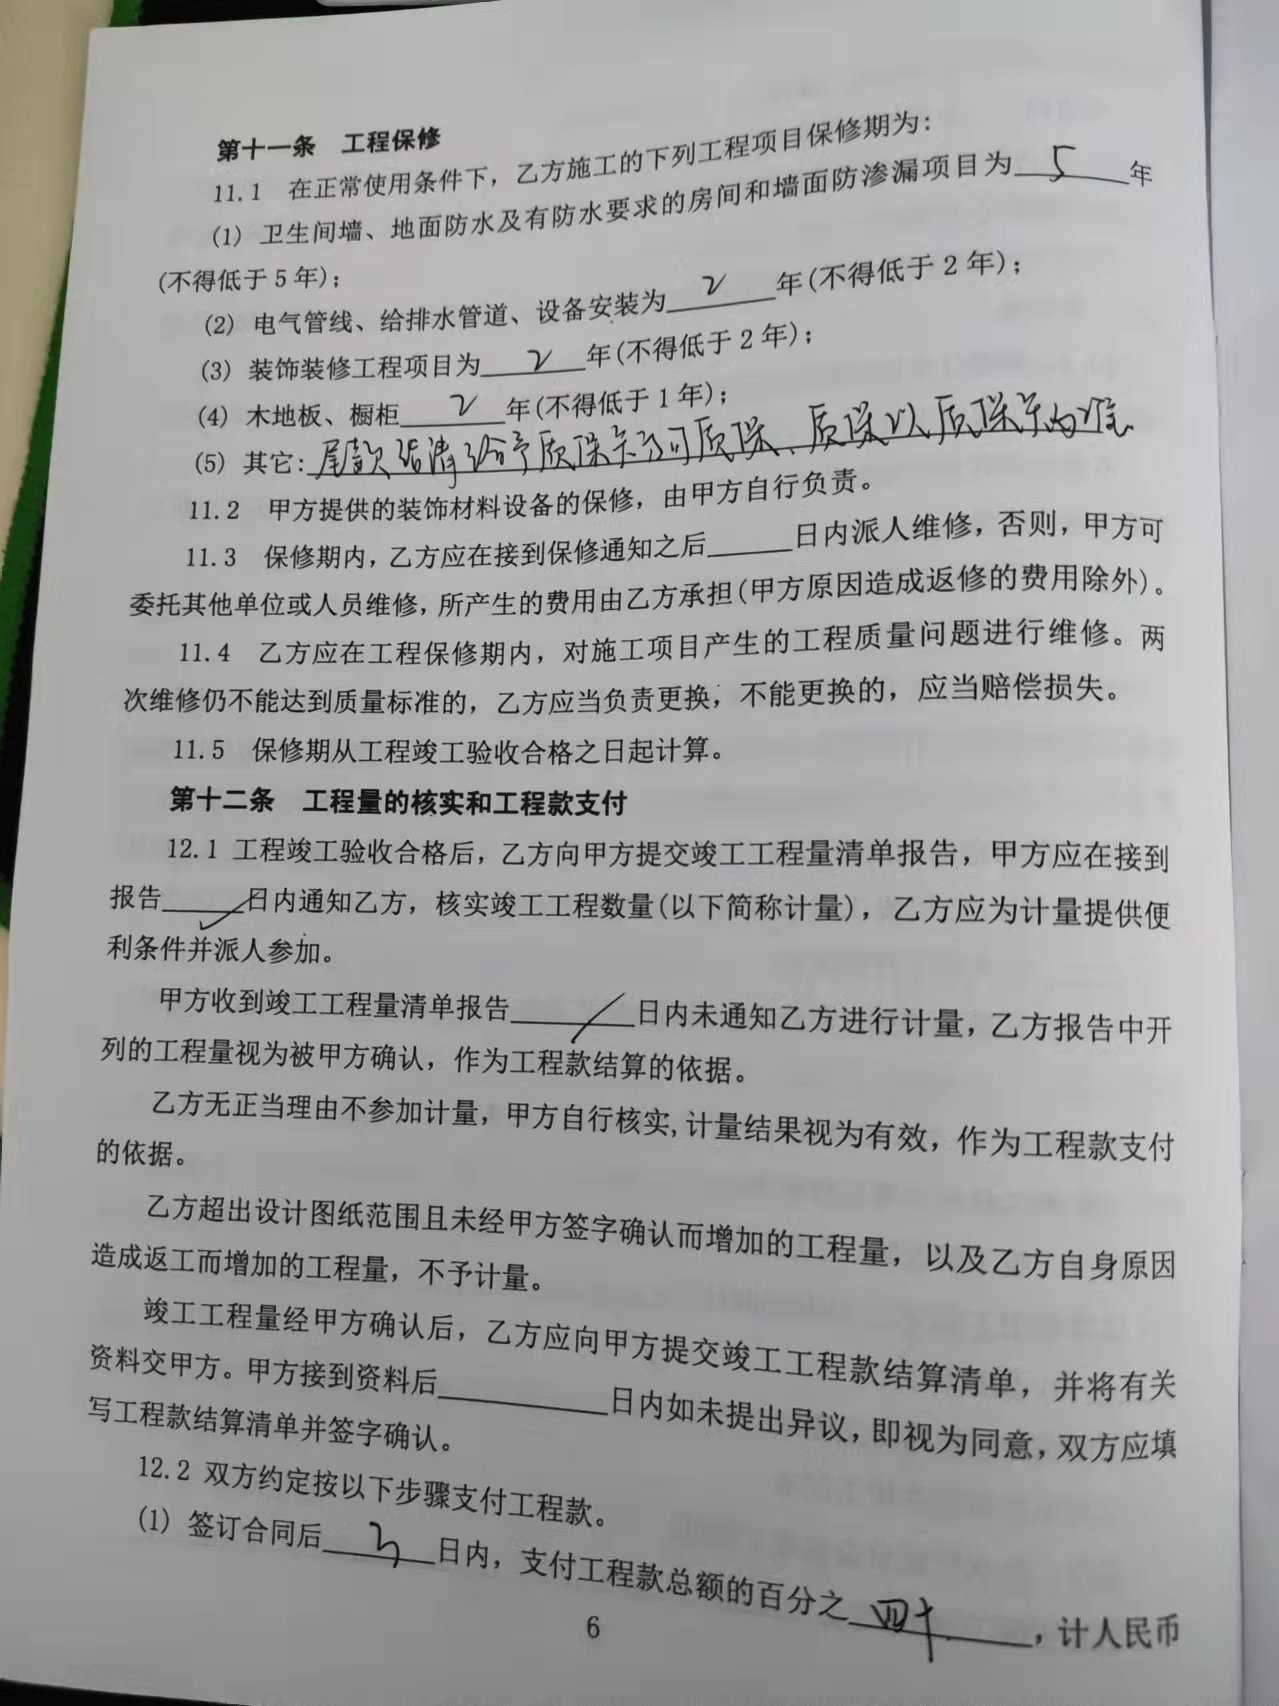 第十一条 工程保修
11.1 在正常使用条件下，乙方施工的下列工程项目保修期为：
(1) 卫生间墙、地面防水及有防水要求的房间和墙面防渗漏项目为 5 年
(不得低于 5 年)；
(2) 电气管线、给排水管道、设备安装为 2 年(不得低于 2 年)；
(3) 装饰装修工程项目为 2 年(不得低于 2 年)；
(4) 木地板、橱柜 2 年(不得低于 1 年)；
(5) 其它: 尾款结清给予质保卡方可质保、质保以质保卡为准
11.2 甲方提供的装饰材料设备的保修，由甲方自行负责。
11.3 保修期内，乙方应在接到保修通知之后______日内派人维修，否则，甲方可
委托其他单位或人员维修，所产生的费用由乙方承担(甲方原因造成返修的费用除外)。
11.4 乙方应在工程保修期内，对施工项目产生的工程质量问题进行维修。两
次维修仍不能达到质量标准的，乙方应当负责更换，不能更换的，应当赔偿损失。
11.5 保修期从工程竣工验收合格之日起计算。
第十二条 工程量的核实和工程款支付
12.1 工程竣工验收合格后，乙方向甲方提交竣工工程量清单报告，甲方应在接到
报告 / 日内通知乙方，核实竣工工程数量(以下简称计量)，乙方应为计量提供便
利条件并派人参加。
甲方收到竣工工程量清单报告 / 日内未通知乙方进行计量，乙方报告中开
列的工程量视为被甲方确认，作为工程款结算的依据。
乙方无正当理由不参加计量，甲方自行核实,计量结果视为有效，作为工程款支付
的依据。
乙方超出设计图纸范围且未经甲方签字确认而增加的工程量，以及乙方自身原因
造成返工而增加的工程量，不予计量。
竣工工程量经甲方确认后，乙方应向甲方提交竣工工程款结算清单，并将有关
资料交甲方。甲方接到资料后____________日内如未提出异议，即视为同意，双方应填
写工程款结算清单并签字确认。
12.2 双方约定按以下步骤支付工程款。
(1) 签订合同后 3 日内，支付工程款总额的百分之 四十 ，计人民币
6